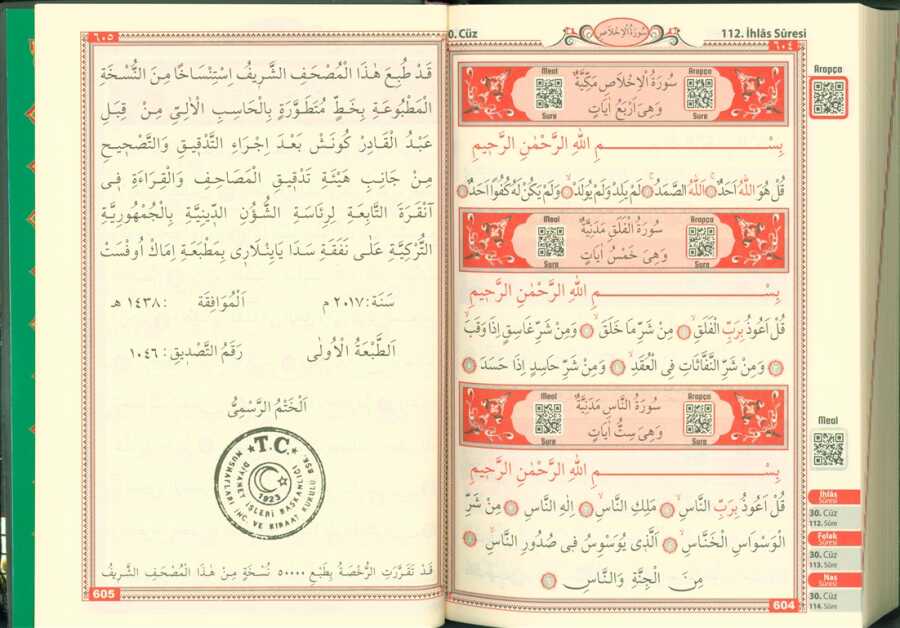 0. Cüz
سُورَةُ الْاِخْلَاصِ
112. İhlâs Sûresi
٦٠٤
Meal
Sure
سُورَةُ الْاِخْلَاصِ مَكِّيَّةٌ
وَهِىَ اَرْبَعُ اٰيَاتٍ
Arapça
Sure
بِسْــــــــمِ اللّٰهِ الرَّحْمٰنِ الرَّحٖيمِ
قُلْ هُوَ اللّٰهُ اَحَدٌ ۞ اَللّٰهُ الصَّمَدُ ۞ لَمْ يَلِدْ وَلَمْ يُولَدْ ۞ وَلَمْ يَكُنْ لَهُ كُفُوًا اَحَدٌ
Meal
Sure
سُورَةُ الْفَلَقِ مَدَنِيَّةٌ
وَهِىَ خَمْسُ اٰيَاتٍ
Arapça
Sure
بِسْــــــــمِ اللّٰهِ الرَّحْمٰنِ الرَّحٖيمِ
قُلْ اَعُوذُ بِرَبِّ الْفَلَقِ ۞ مِنْ شَرِّ مَا خَلَقَ ۞ وَمِنْ شَرِّ غَاسِقٍ اِذَا وَقَبَ
۞ وَمِنْ شَرِّ النَّفَّاثَاتِ فِى الْعُقَدِ ۞ وَمِنْ شَرِّ حَاسِدٍ اِذَا حَسَدَ ۞
Meal
Sure
سُورَةُ النَّاسِ مَدَنِيَّةٌ
وَهِىَ سِتُّ اٰيَاتٍ
Arapça
Sure
بِسْــــــــمِ اللّٰهِ الرَّحْمٰنِ الرَّحٖيمِ
قُلْ اَعُوذُ بِرَبِّ النَّاسِ ۞ مَلِكِ النَّاسِ ۞ اِلٰهِ النَّاسِ ۞ مِنْ شَرِّ
الْوَسْوَاسِ الْخَنَّاسِ ۞ اَلَّذٖى يُوَسْوِسُ فٖى صُدُورِ النَّاسِ ۞
مِنَ الْجِنَّةِ وَالنَّاسِ ۞
604
Arapça
Meal
İhlâs
Sûresi
30. Cüz
112. Sûre
Felak
Sûresi
30. Cüz
113. Sûre
Nas
Sûresi
30. Cüz
114. Sûre
٦٠٥
قَدْ طُبِعَ هٰذَا الْمُصْحَفِ الشَّرٖيفُ اِسْتِنْسَاخًا مِنَ النُّسْخَةِ
الْمَطْبُوعَةِ بِخَطٍّ مُتَطَوِّرَةٍ بِالْحَاسِبِ الْاٰلِيِّ مِنْ قِبَلِ
عَبْدُ الْقَادِرْ كُونَشْ بَعْدَ اِجْرَاءِ التَّدْقٖيقِ وَالتَّصْحٖيحِ
مِنْ جَانِبِ هَيْئَةِ تَدْقٖيقِ الْمَصَاحِفِ وَالْقِرَاءَةِ فٖى
اَنْقَرَةَ التَّابِعَةِ لِرِئَاسَةِ الشُّؤُنِ الدّٖينِيَّةِ بِالْجُمْهُورِيَّةِ
التُّرْكِيَّةِ عَلٰى نَفَقَةِ سَدَا يَايِنْلَارٖى بِمَطْبَعَةِ اِمَاكْ اُوفْسَتْ
سَنَةَ: ٢٠١٧ م اَلْمُوَافِقَةَ: ١٤٣٨ هـ
اَلطَّبْعَةُ الْاُولٰى رَقَمُ التَّصْدٖيقِ: ١٠٤٦
اَلْخَتْمُ الرَّسْمِىُّ
T.C.
DİYANET İŞLERİ BAŞKANLIĞI
MUSHAFLARI İNC. VE KIRAAT KURULU BŞK.
1923
قَدْ تَقَرَّرَتِ الرُّخْصَةُ بِطَبْعِ ٥٠٠٠٠ نُسْخَةٍ مِنْ هٰذَا الْمُصْحَفِ الشَّرٖيفُ
605